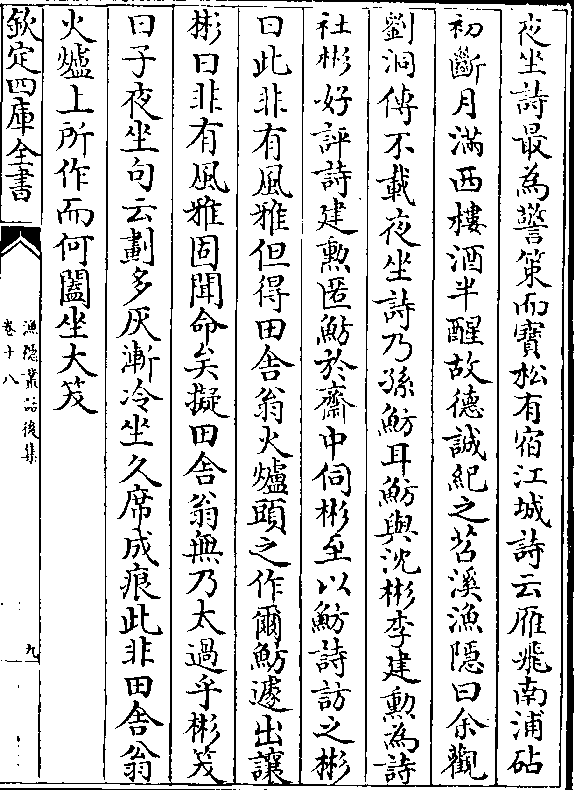 夜坐詩最為警策而寶松有宿江城詩云雁飛南浦砧
初斷月滿西樓酒半醒故德誠紀之苕溪漁隠曰余觀
劉洞傳不載夜坐詩乃孫魴耳魴與沈彬李建勲為詩
社彬好評詩建勲匿魴於齋中伺彬至以魴詩訪之彬
曰此非有風雅但得田舎翁火爐頭之作爾魴遽出讓
彬曰非有風雅固聞命矣擬田舎翁無乃太過乎彬笑
曰子夜坐句云劃多灰漸冷坐久席成痕此非田舎翁
火爐上所作而何闔坐大笑
欽定四庫全書
漁隠叢話後集
卷十八
九